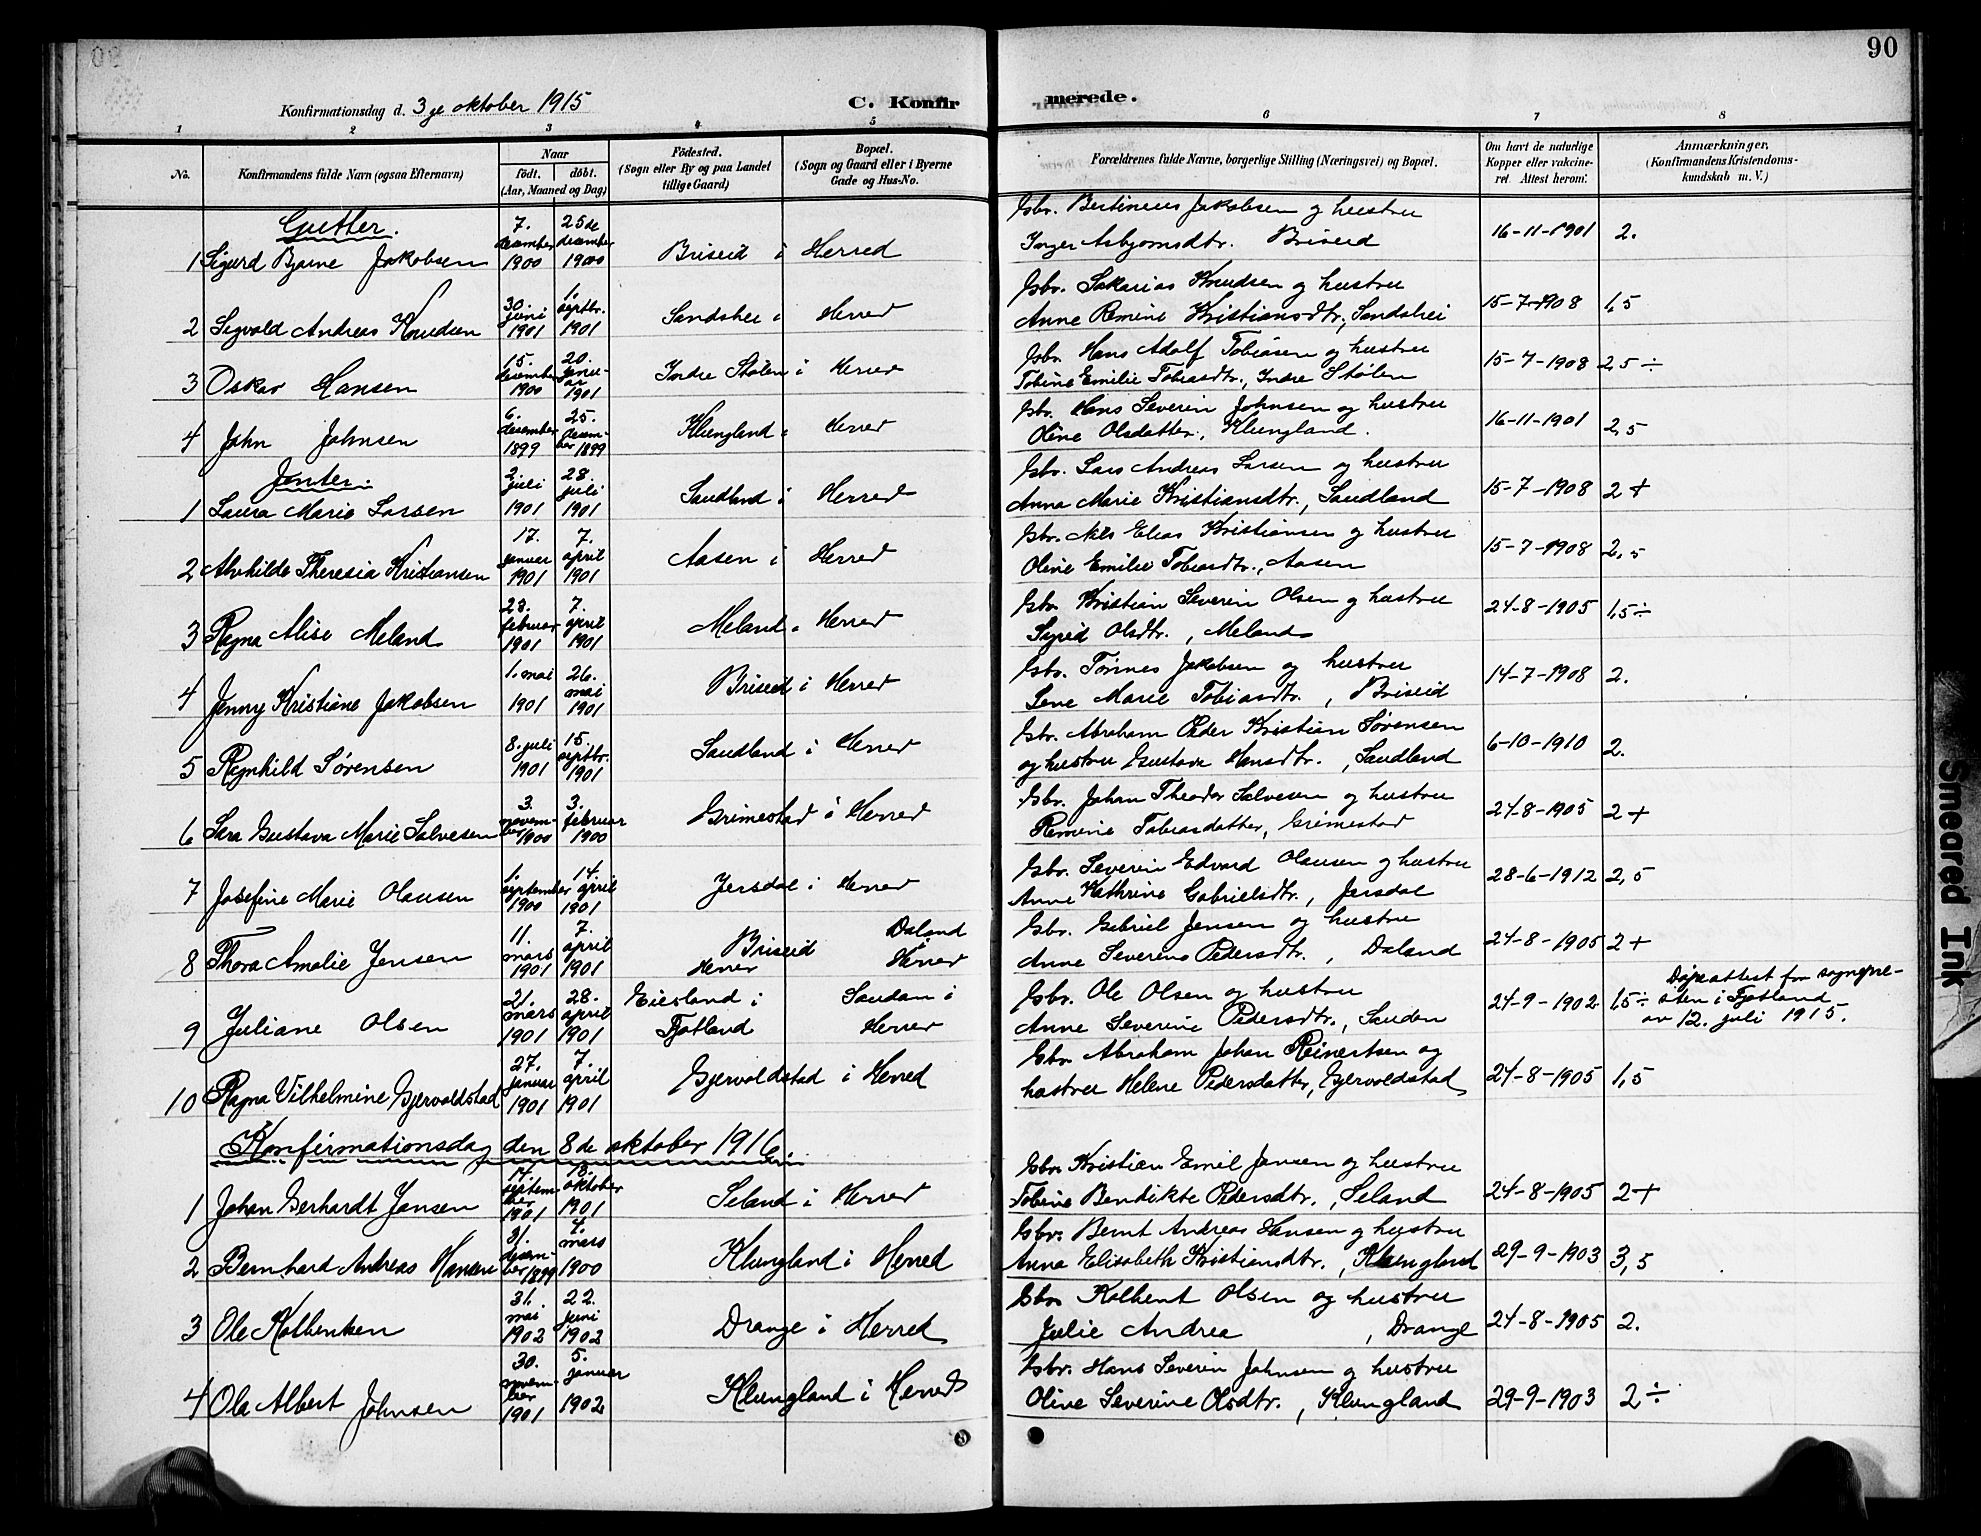 90
Konfirmationsdag d. 3je oktober 1915
C. Konfirmerede.
1 2 3 4 5 6 7 8
No.
Konfirmandens fulde Navn (ogsaa Efternavn)
Naar
født. døbt.
(Aar, Maaned og Dag)
Fødested.
(Sogn eller By og paa Landet
tillige Gaard)
Bopæl.
(Sogn og Gaard eller i Byerne
Gade og Hus-No.
Forældrenes fulde Navne, borgerlige Stilling (Næringsvei) og Bopæl.
Om havt de naturlige
Kopper eller vakcine-
ret. Attest herom.
Anmærkninger,
(Konfirmandens Kristendoms-
kundskab m. V.)
Gutter.
1 Sigurd Bjarne Jakobsen 7. desember 1900 25de desember 1900 Briseid i Herred Gbr. Bertineus Jakobsen og hustru
Inger Asbjørnsdtr. Briseid 16-11-1901 2.
2 Sigvald Andreas Knudsen 30 juni 1901 1. septbr. 1901 Sandshei i Herred Gbr. Sakarias Knudsen og hustru
Anne Remine Kristiansdtr., Sandshei 15-7-1908 1,5
3 Oskar Hansen 15. desember 1900 20. januar 1901 Indre Stølen i Herred Gbr. Hans Adolf Tobiasen og hustru
Tobine Emilie Tobiasdtr., Indre Stølen 15-7-1908 2,5 ÷
4 John Johnsen 6. desember 1899 25. desember 1899 Klungland i Herred Gbr. Hans Severin Johnsen og hustru
Oline Olsdatter, Klungland. 16-11-1901 2,5
Jenter.
1 Laura Marie Larsen 2. juli 1901 28. juli 1901 Sandland i Herred Gbr. Lars Andreas Larsen og hustru
Anna Marie Kristiansdtr., Sandland 15-7-1908 2+
2 Alvhilde Theresia Kristiansen 17. januar 1901 7. april 1901 Aasen i Herred Gbr. Nils Elias Kristiansen og hustru
Oline Emilie Tobiasdtr., Aasen 15-7-1908 2,5
3 Ragna Alise Meland 23. februar 1901 7. april 1901 Meland i Herred Gbr. Kristian Severin Olsen og hustru
Sigrid Olsdtr., Meland 24-8-1905 1,5÷
4 Jenny Kristiane Jakobsen 1. mai 1901 26. mai 1901 Briseid i Herred Gbr. Tørnes Jakobsen og hustru
Lene Marie Tobiasdtr., Briseid 14-7-1908 2.
5 Ragnhild Sørensen 8. juli 1901 15. septbr. 1901 Sandland i Herred Gbr. Abraham Peder Kristian Sørensen
og hustru Gustava Hansdtr., Sandland 6-10-1910 2.
6 Sara Gustava Marie Salvesen 3. november 1900 3. februar 1900 Grimestad i Herred Gbr. Johan Theodor Salvesen og hustru
Remine Tobiasdatter, Grimestad 24-8-1905 2+
7 Josefine Marie Olausen 1. september 1900 14. april 1901 Jersdal i Herred Gbr. Severin Edvard Olausen og hustru
Anne Kathrine Gabrielsdtr., Jersdal 28-6-1912 2,5
8 Thora Amalie Jensen 11. mars 1901 7. april 1901 Briseid Herred Daland Herred Gbr. Gabriel Jensen og hustru
Anne Severine Pedersdtr., Daland 24-8-1905 2+
9 Juliane Olsen 21. mars 1901 28. april 1901 Eiesland i Fjotland Saudan i Herred Gbr. Ole Olsen og hustru
Anne Severine Pedersdtr., Sauden 24-9-1902 1,5÷ Døpeattest fra sognepresten i Fjotland
av 12. juli 1915.
10 Ragna Vilhelmine Gjervoldstad 27. januar 1901 7. april 1901 Gjervoldstad i Herred Gbr. Abraham Johan Reinertsen og
hustrue Helene Pedersdatter, Gjervoldstad 24-8-1905 1,5
Konfirmationsdag den 8de oktober 1916.
1 Johan Gerhardt Jansen 14. september 1901 13. oktober 1901 Seland i Herred Gbr. Kristian Emil Jansen og hustru
Tobine Bendikte Pedersdtr., Seland 24-8-1905 2+
2 Bernhard Andreas Hansen 31. desember 1899 4. mars 1900 Klungland i Herred Gbr. Bernt Andreas Hansen og hustru
Anna Elisabeth Kristiansdtr., Klungland 29-9-1903 3,5
3 Ole Kolbentsen 31. mai 1902 22. juni 1902 Drange i Herred Gbr. Kolbent Olsen og hustru
Julie Andrea , Drange 24-8-1905 2.
4 Ole Albert Johnsen 30. november 1901 5. januar 1902 Klungland i Herred Gbr. Hans Severin Johnsen og hustru
Oline Severine Olsdtr., Klungland 29-9-1903 2÷
Smeared Ink